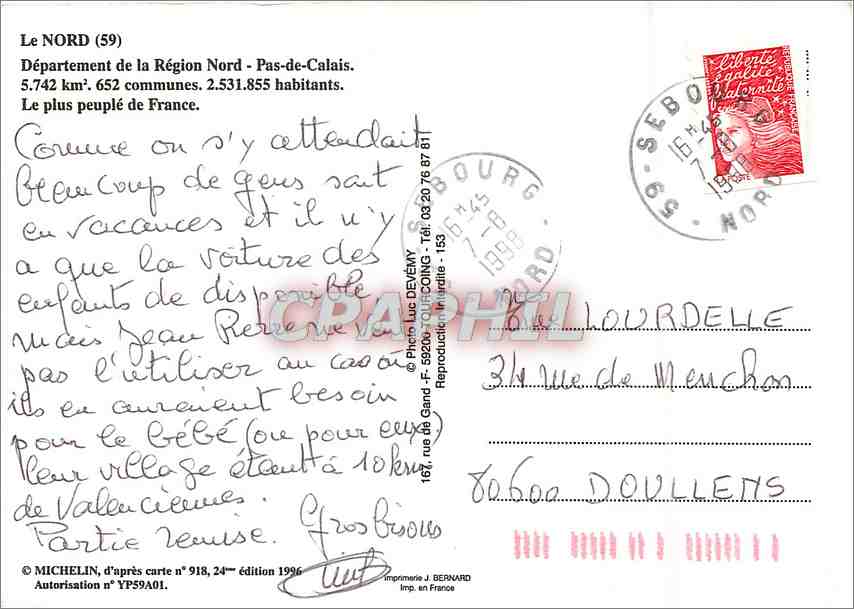 Le NORD (59)
Département de la Région Nord - Pas-de-Calais.
5.742 km². 652 communes. 2.531.855 habitants.
Le plus peuplé de France.
Comme on s'y attendait
beaucoup de gens sont
en vacances et il n'y
a que la voiture des
enfants de disponible
mais Jean Pierre ne veut
pas l'utiliser au cas où
ils en auraient besoin
pour le bébé (ou pour eux)
leur village étant à 10 kms
de Valenciennes.
Partie remise. Gros bisous
© MICHELIN, d'après carte n° 918, 24ème édition 1996
Autorisation n° YP59A01.
Imprimerie J. BERNARD
Imp. en France
© Photo Luc DEVÉMY
167, rue de Gand -F- 59200 TOURCOING - Tél. 03 20 76 87 81
Reproduction Interdite - 153
SEBOURG
16 H 45
7-8
1998
NORD
liberté
égalité
fraternité
RÉPUBLIQUE FRANÇAISE
LA POSTE
59 - SEBOURG
16 H 45
7-8
1998
NORD
CPAPHIL
LOURDELLE
34 rue de Menchon
80600 DOULLENS